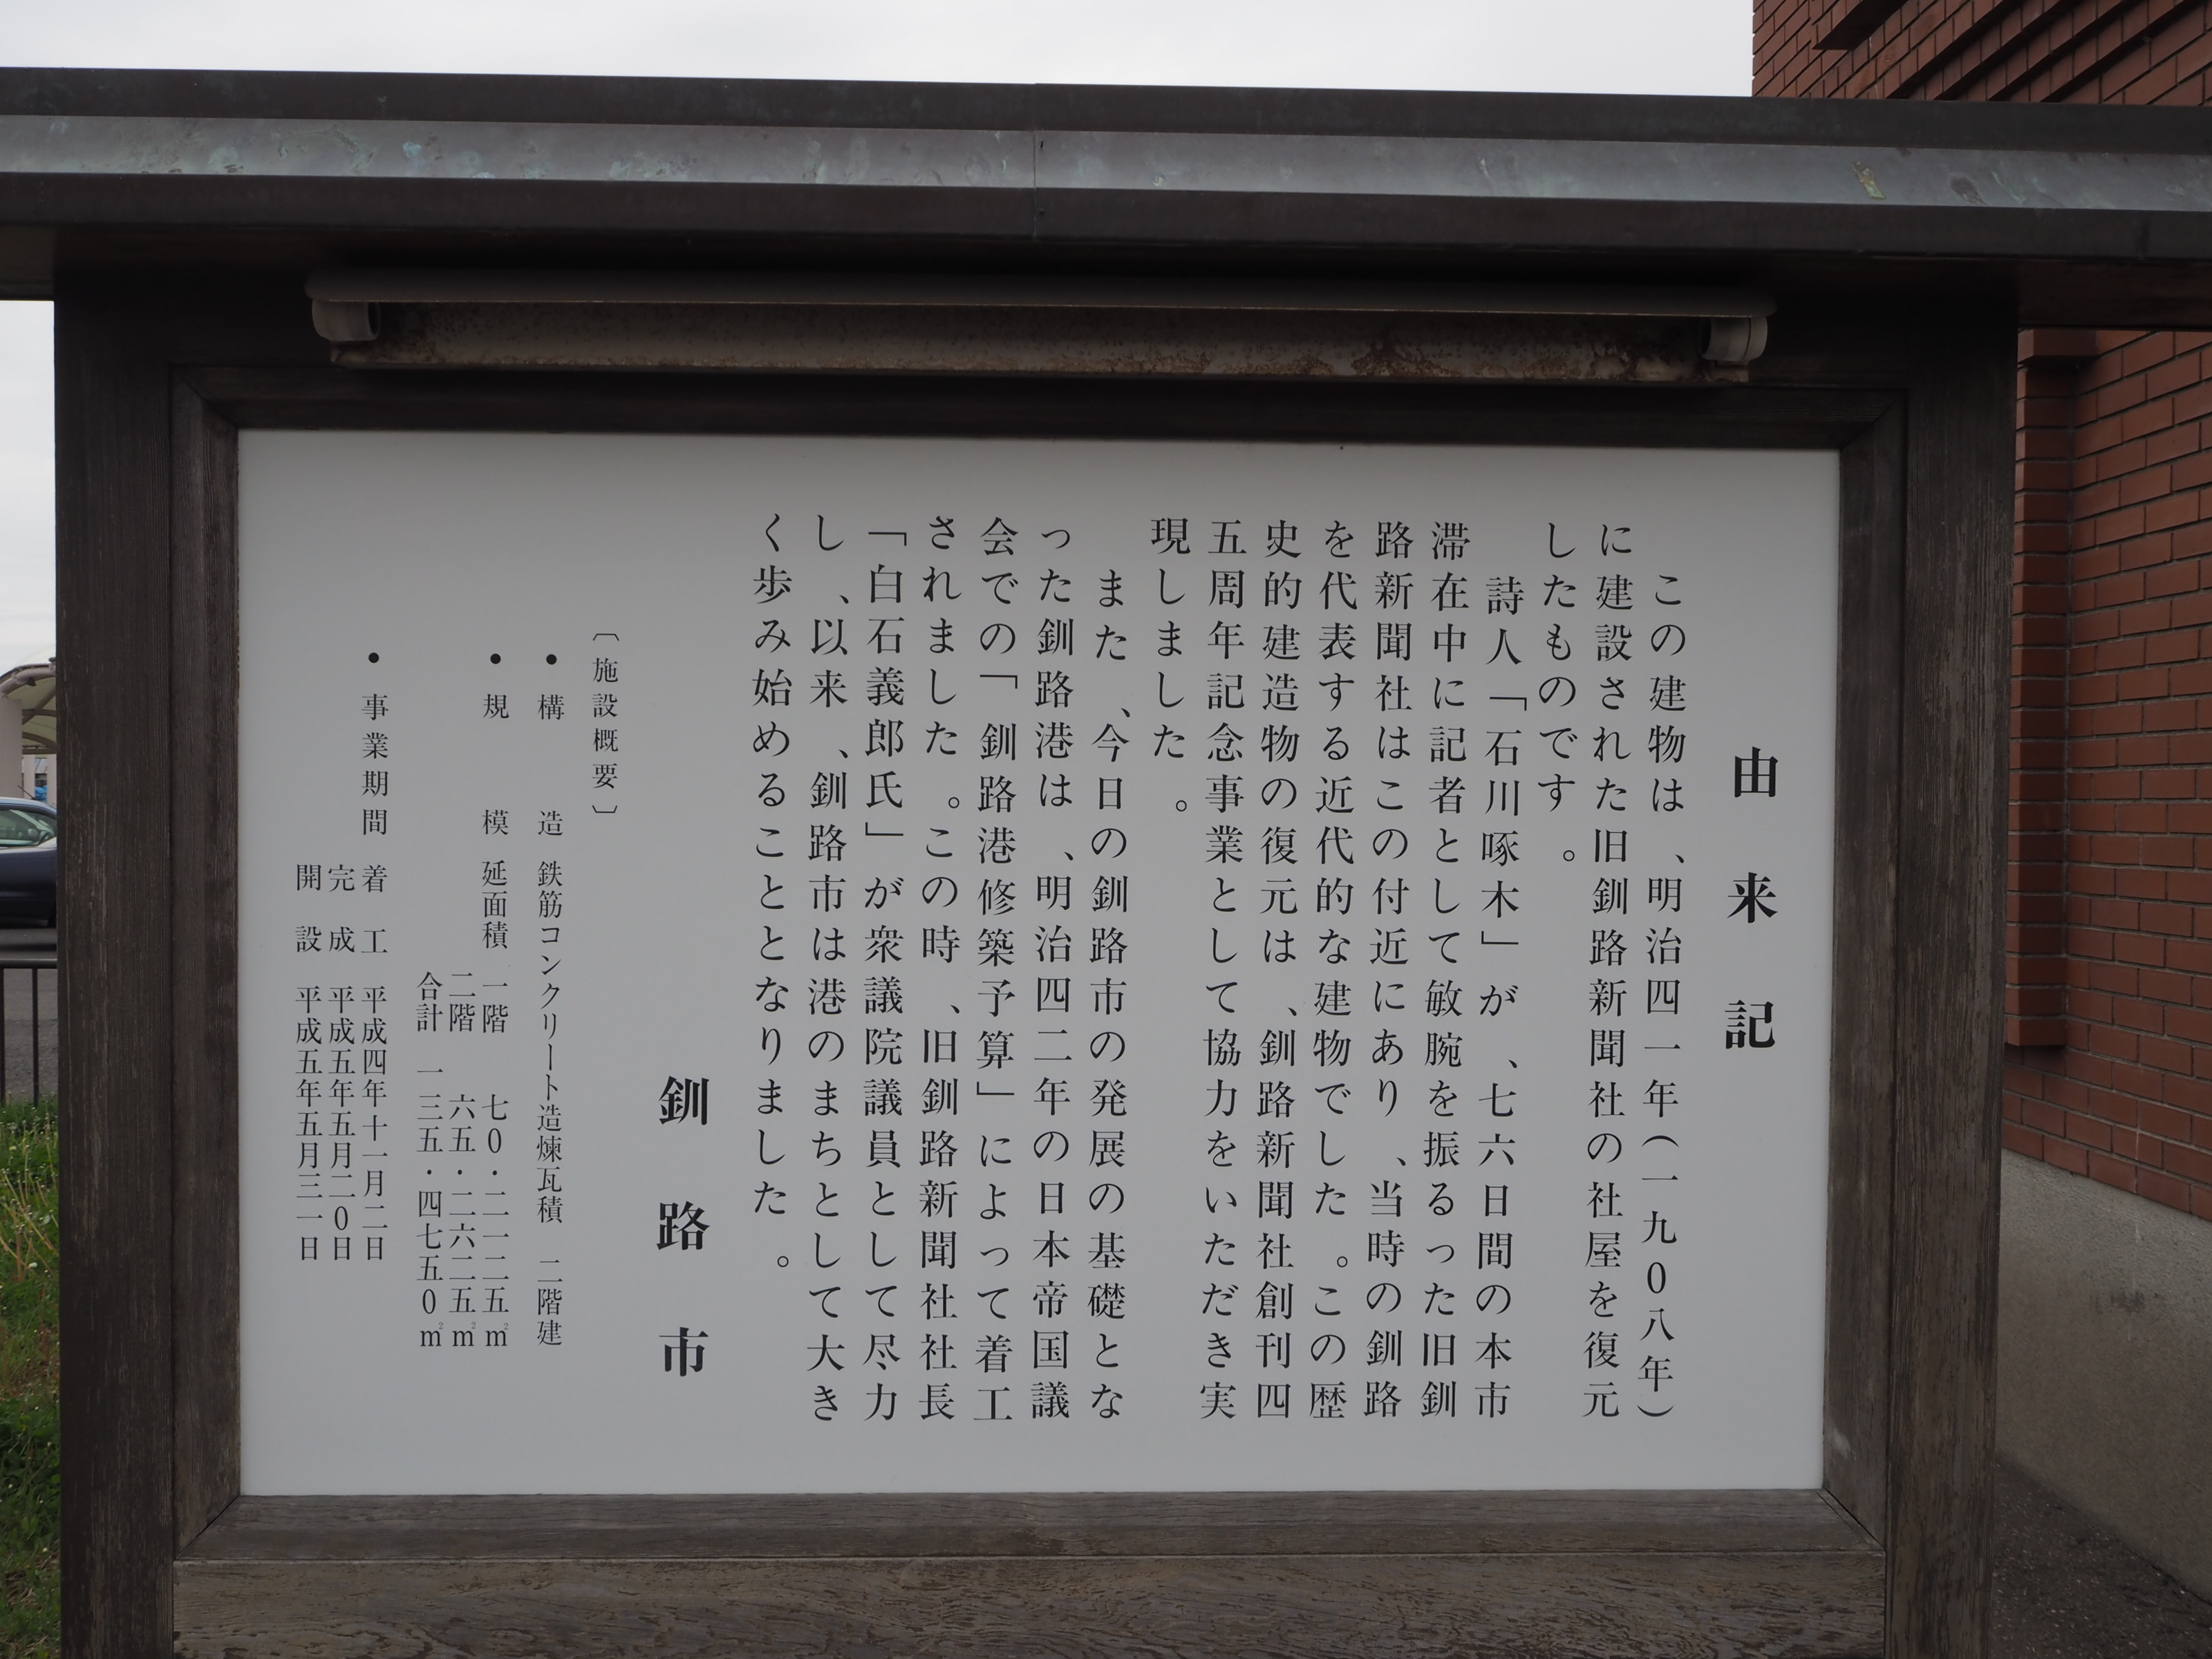 由来記
この建物は、明治四一年（一九０八年）
に建設された旧釧路新聞社の社屋を復元
したものです。
詩人「石川啄木」が、七六日間の本市
滞在中に記者として敏腕を振るった旧釧
路新聞社はこの付近にあり、当時の釧路
を代表する近代的な建物でした。この歴
史的建造物の復元は、釧路新聞社創刊四
五周年記念事業として協力をいただき実
現しました。
また、今日の釧路市の発展の基礎とな
った釧路港は、明治四二年の日本帝国議
会での「釧路港修築予算」によって着工
されました。この時、旧釧路新聞社社長
「白石義郎氏」が衆議院議員として尽力
し、以来、釧路市は港のまちとして大き
く歩み始めることとなりました。
釧路市
〔施設概要〕
●構造 鉄筋コンクリート造煉瓦積 二階建
●規模 延面積 一階 七０・二一二五㎡
二階 六五・二六二五㎡
合計 一三五・四七五０㎡
●事業期間 着工 平成四年十一月二日
完成 平成五年五月二０日
開設 平成五年五月三一日